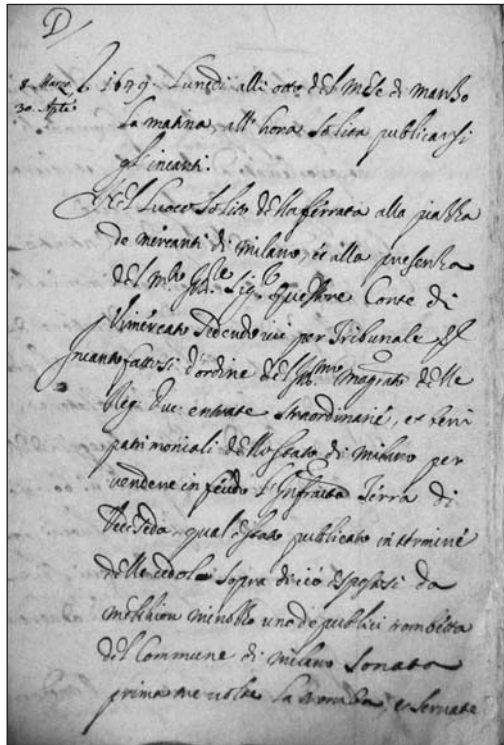 D
8 Marzo
30 Aple
1649. Lunedi alli otto del mese di marzo
la matina, all'hora solita publicarsi
gl'incanti.
Nel luoco solito della ferrata alla piazza
de mercanti di milano, et alla presenza
del m.to Ill.e Sig.r Questore Conte di
Vimercato sedendo ivi per Tribunale
incanto fattosi d'ordine dell'Ill.mo Magrato delle
Reg. Duc. entrate straordinarie, et beni
patrimoniali dello stato di milano per
vendere in feudo l'infratta Terra di
qual è stato publicato in termine
delle cedole sopra di ciò esposesi da
uno de publici trombetta
del Commune di milano sonata
prima tre volte la tromba, et servate